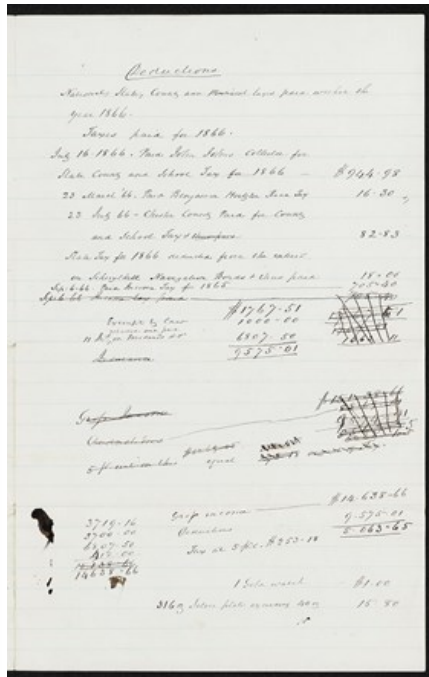 Deductions
National, State, County and Municipal taxes paid within the
year 1866.
Taxes paid for 1866.
July 16 - 1866 - Paid John Collector for
State County and School Tax for 1866 - $944-98
23 March 66 - Paid Benjamin Road Tax 16-30
23 July 66 - Chester County Paid for County
and School Tax 82-83
State Tax for 1866 deducted from the interest
on Schuylkill Navigation Bonds & Loans paid 18-00
Sep. 6. 66 Paid Income Tax for 1865 705-40
Sep. 6. 66 Income tax paid
$1767-51
Exempt by law 1000-00
6807-50
9575-01
Gross Income
Deductions
5 equal
3719-16
3700-00
6807-50
412-00
14638-66
Gross income $14.638-66
Deductions 9.575-01
5.063-65
Tax at 5 pc. $253-18
1 Gold watch $1.00
316 oz Silver plate 15-80